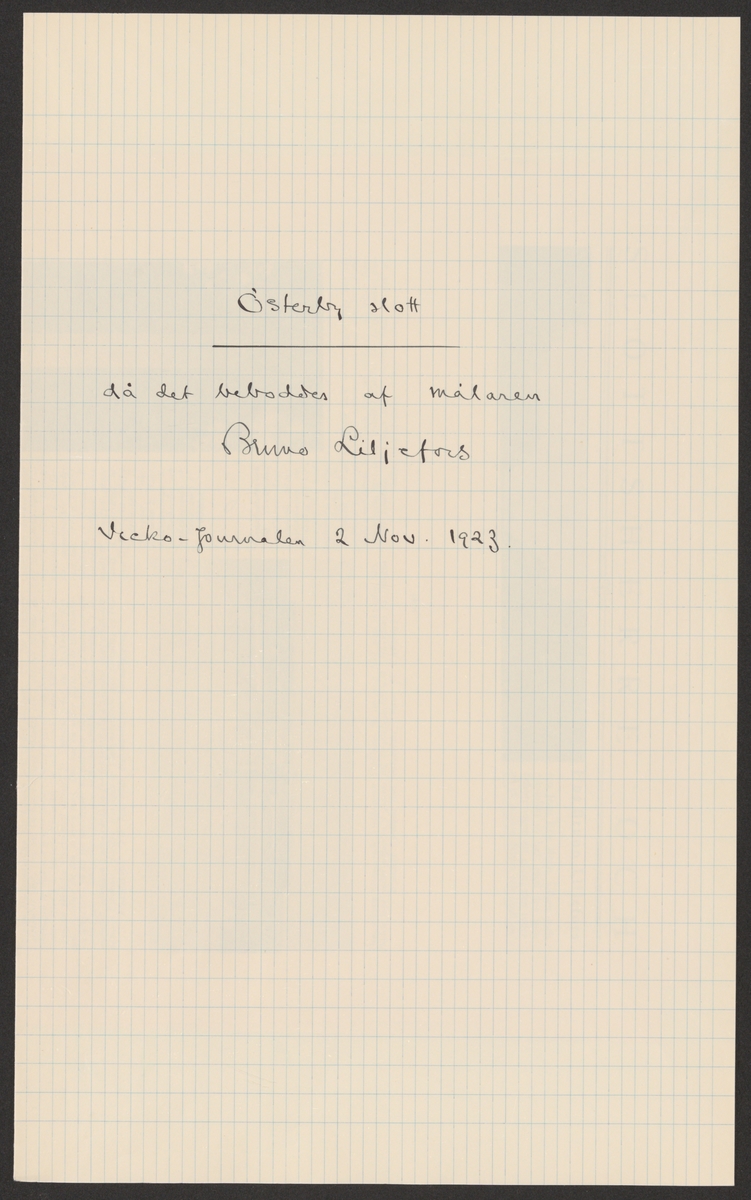 Österby slott
då det beboddes af målaren
Bruno Liljefors
Vecko-Journalen 2 Nov. 1923.